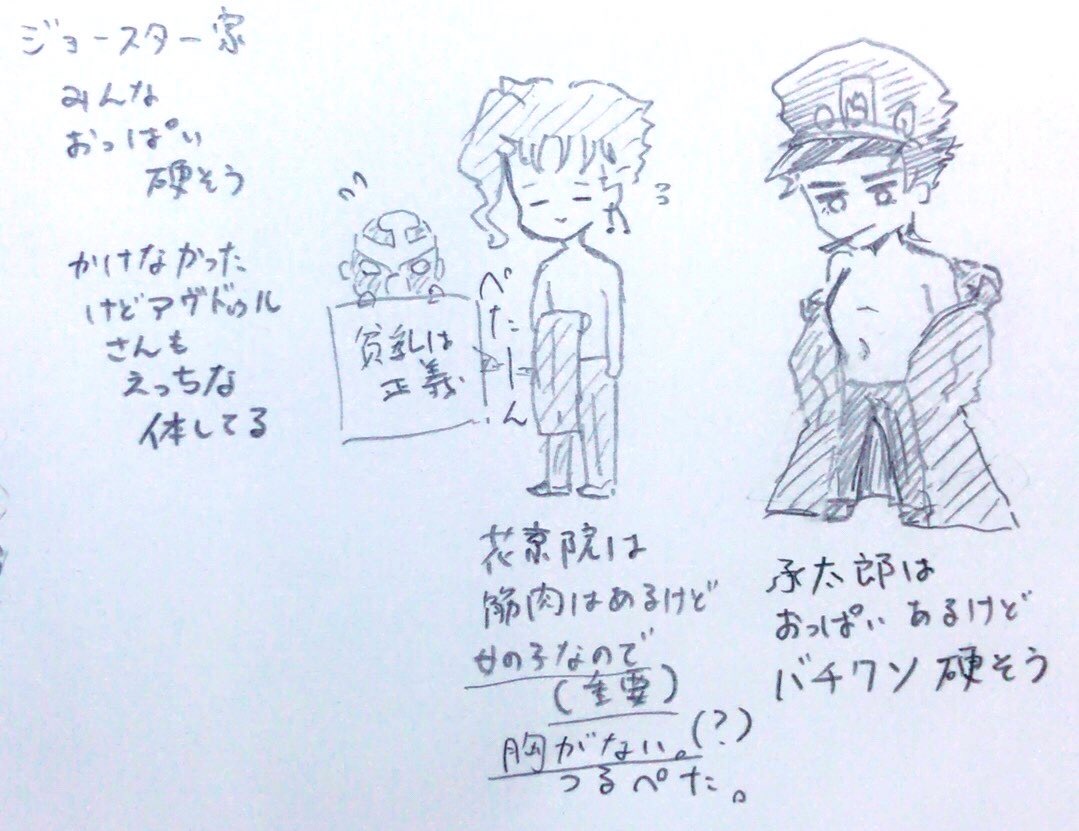 ジョースター家
みんな
おっぱい
硬そう
かけなかった
けどアヴドゥル
さんも
えっちな
体してる
貧乳は
正義
ぺたーん
花京院は
筋肉はあるけど
女の子なので
(重要)
胸がない。(?)
つるぺた。
承太郎は
おっぱいあるけど
バチクソ硬そう